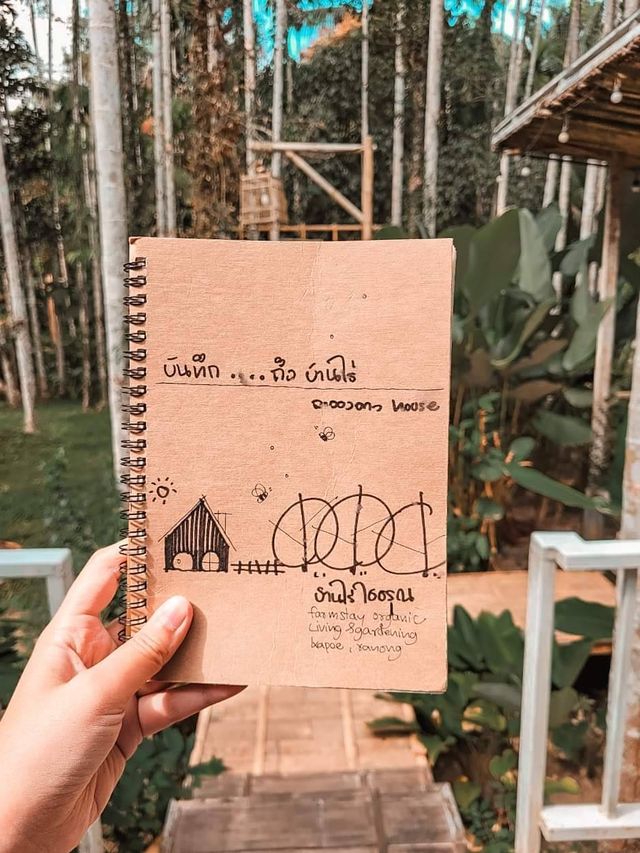 บันทึก .... ถึง บ้านไร่
house
บ้านไร่ไออรุณ
farmstay organic
Living & gardening
kapoe, ranong